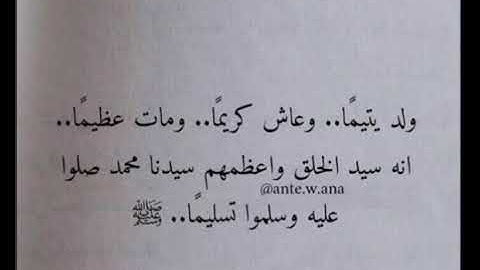 ولد يتيمًا.. وعاش كريمًا.. ومات عظيمًا..
انه سيد الخلق واعظمهم سيدنا محمد صلوا
@ante.w.ana
عليه وسلموا تسليمًا.. ﷺ